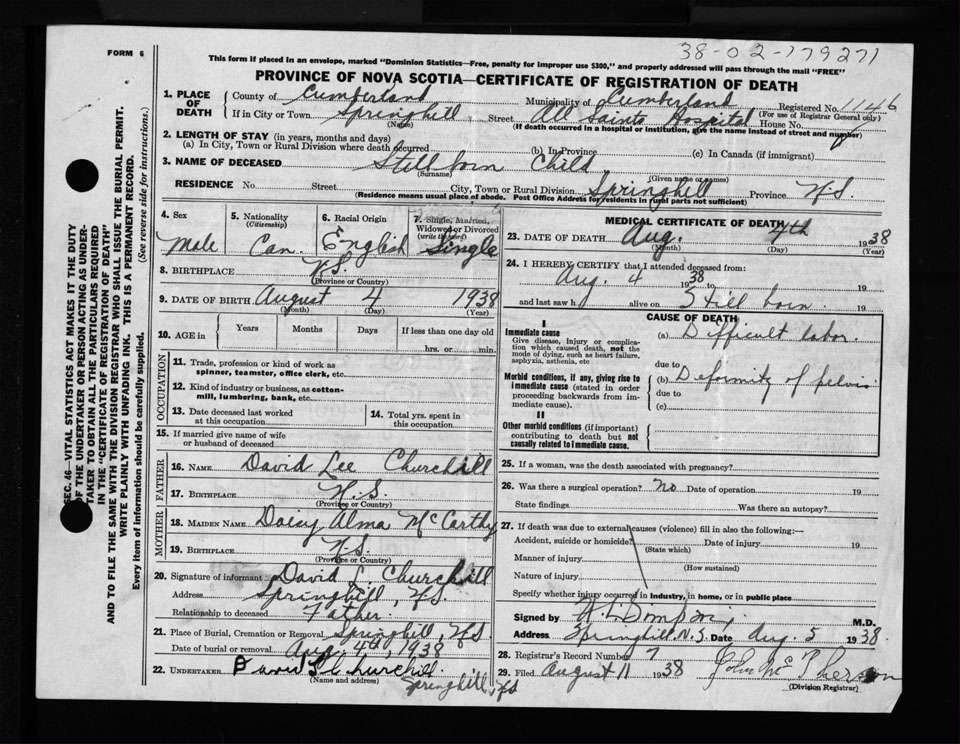 38-02-179271
FORM 6
This form if placed in an envelope, marked "Dominion Statistics—Free, penalty for improper use $300," and properly addressed will pass through the mail "FREE"
PROVINCE OF NOVA SCOTIA—CERTIFICATE OF REGISTRATION OF DEATH
SEC. 46—VITAL STATISTICS ACT MAKES IT THE DUTY
OF THE UNDERTAKER OR PERSON ACTING AS UNDER-
TAKER TO OBTAIN ALL THE PARTICULARS REQUIRED
IN THE "CERTIFICATE OF REGISTRATION OF DEATH"
AND TO FILE THE SAME WITH THE DIVISION REGISTRAR WHO SHALL ISSUE THE BURIAL PERMIT.
WRITE PLAINLY WITH UNFADING INK. THIS IS A PERMANENT RECORD.
Every item of information should be carefully supplied. (See reverse side for instructions.)
1. PLACE OF DEATH
County of Cumberland Municipality of Cumberland Registered No. 1146
(For use of Registrar General only)
If in City or Town Springhill Street All Saints Hospital House No.
(Name) (If death occurred in a hospital or institution, give the name instead of street and number)
2. LENGTH OF STAY (in years, months and days)
(a) In City, Town or Rural Division where death occurred (b) In Province (c) In Canada (if immigrant)
3. NAME OF DECEASED Stillborn Child
(Surname) (Given name or names)
RESIDENCE No. Street City, Town or Rural Division Springhill Province N.S.
(Residence means usual place of abode. Post Office Address for residents in rural parts not sufficient)
4. Sex Male
5. Nationality (Citizenship) Can.
6. Racial Origin English
7. Single, Married, Widowed or Divorced (write the word) Single
8. BIRTHPLACE N.S.
(Province or Country)
9. DATE OF BIRTH August 4 1938
(Month) (Day) (Year)
10. AGE in Years Months Days If less than one day old
hrs. or min.
OCCUPATION
11. Trade, profession or kind of work as
spinner, teamster, office clerk, etc.
12. Kind of industry or business, as cotton-
mill, lumbering, bank, etc.
13. Date deceased last worked
at this occupation
14. Total yrs. spent in
this occupation
15. If married give name of wife
or husband of deceased
FATHER
16. NAME David Lee Churchill
17. BIRTHPLACE N.S.
(Province or Country)
MOTHER
18. MAIDEN NAME Daisy Alma McCarthy
19. BIRTHPLACE N.S.
(Province or Country)
20. Signature of informant David L. Churchill
Address Springhill, N.S.
Relationship to deceased Father
21. Place of Burial, Cremation or Removal Springhill, N.S
Date of burial or removal Aug. 4th 1938
22. UNDERTAKER David L Churchill
(Name and address)
Springhill, N.S
MEDICAL CERTIFICATE OF DEATH
23. DATE OF DEATH Aug. 4th 1938
(Month) (Day) (Year)
24. I HEREBY CERTIFY that I attended deceased from:
Aug. 4 1938 to 19
and last saw h alive on Still born 19
CAUSE OF DEATH
I
Immediate cause
Give disease, injury or complica-
tion which caused death, not the
mode of dying, such as heart failure,
asphyxia, asthenia, etc
(a) Difficult labor.
due to
Morbid conditions, if any, giving rise to
immediate cause (stated in order
proceeding backwards from im-
mediate cause).
(b) Deformity of pelvis
due to
(c)
II
Other morbid conditions (if important)
contributing to death but not
causally related to immediate cause.
25. If a woman, was the death associated with pregnancy?
26. Was there a surgical operation? No Date of operation 19
State findings Was there an autopsy?
27. If death was due to external causes (violence) fill in also the following:—
Accident, suicide or homicide? Date of injury 19
(State which)
Manner of injury
(How sustained)
Nature of injury
Specify whether injury occurred in industry, in home, or in public place
Signed by M.D.
Address Springhill N.S. Date Aug. 5 1938.
28. Registrar's Record Number 7
29. Filed August 11 1938 John McPherson
(Division Registrar)